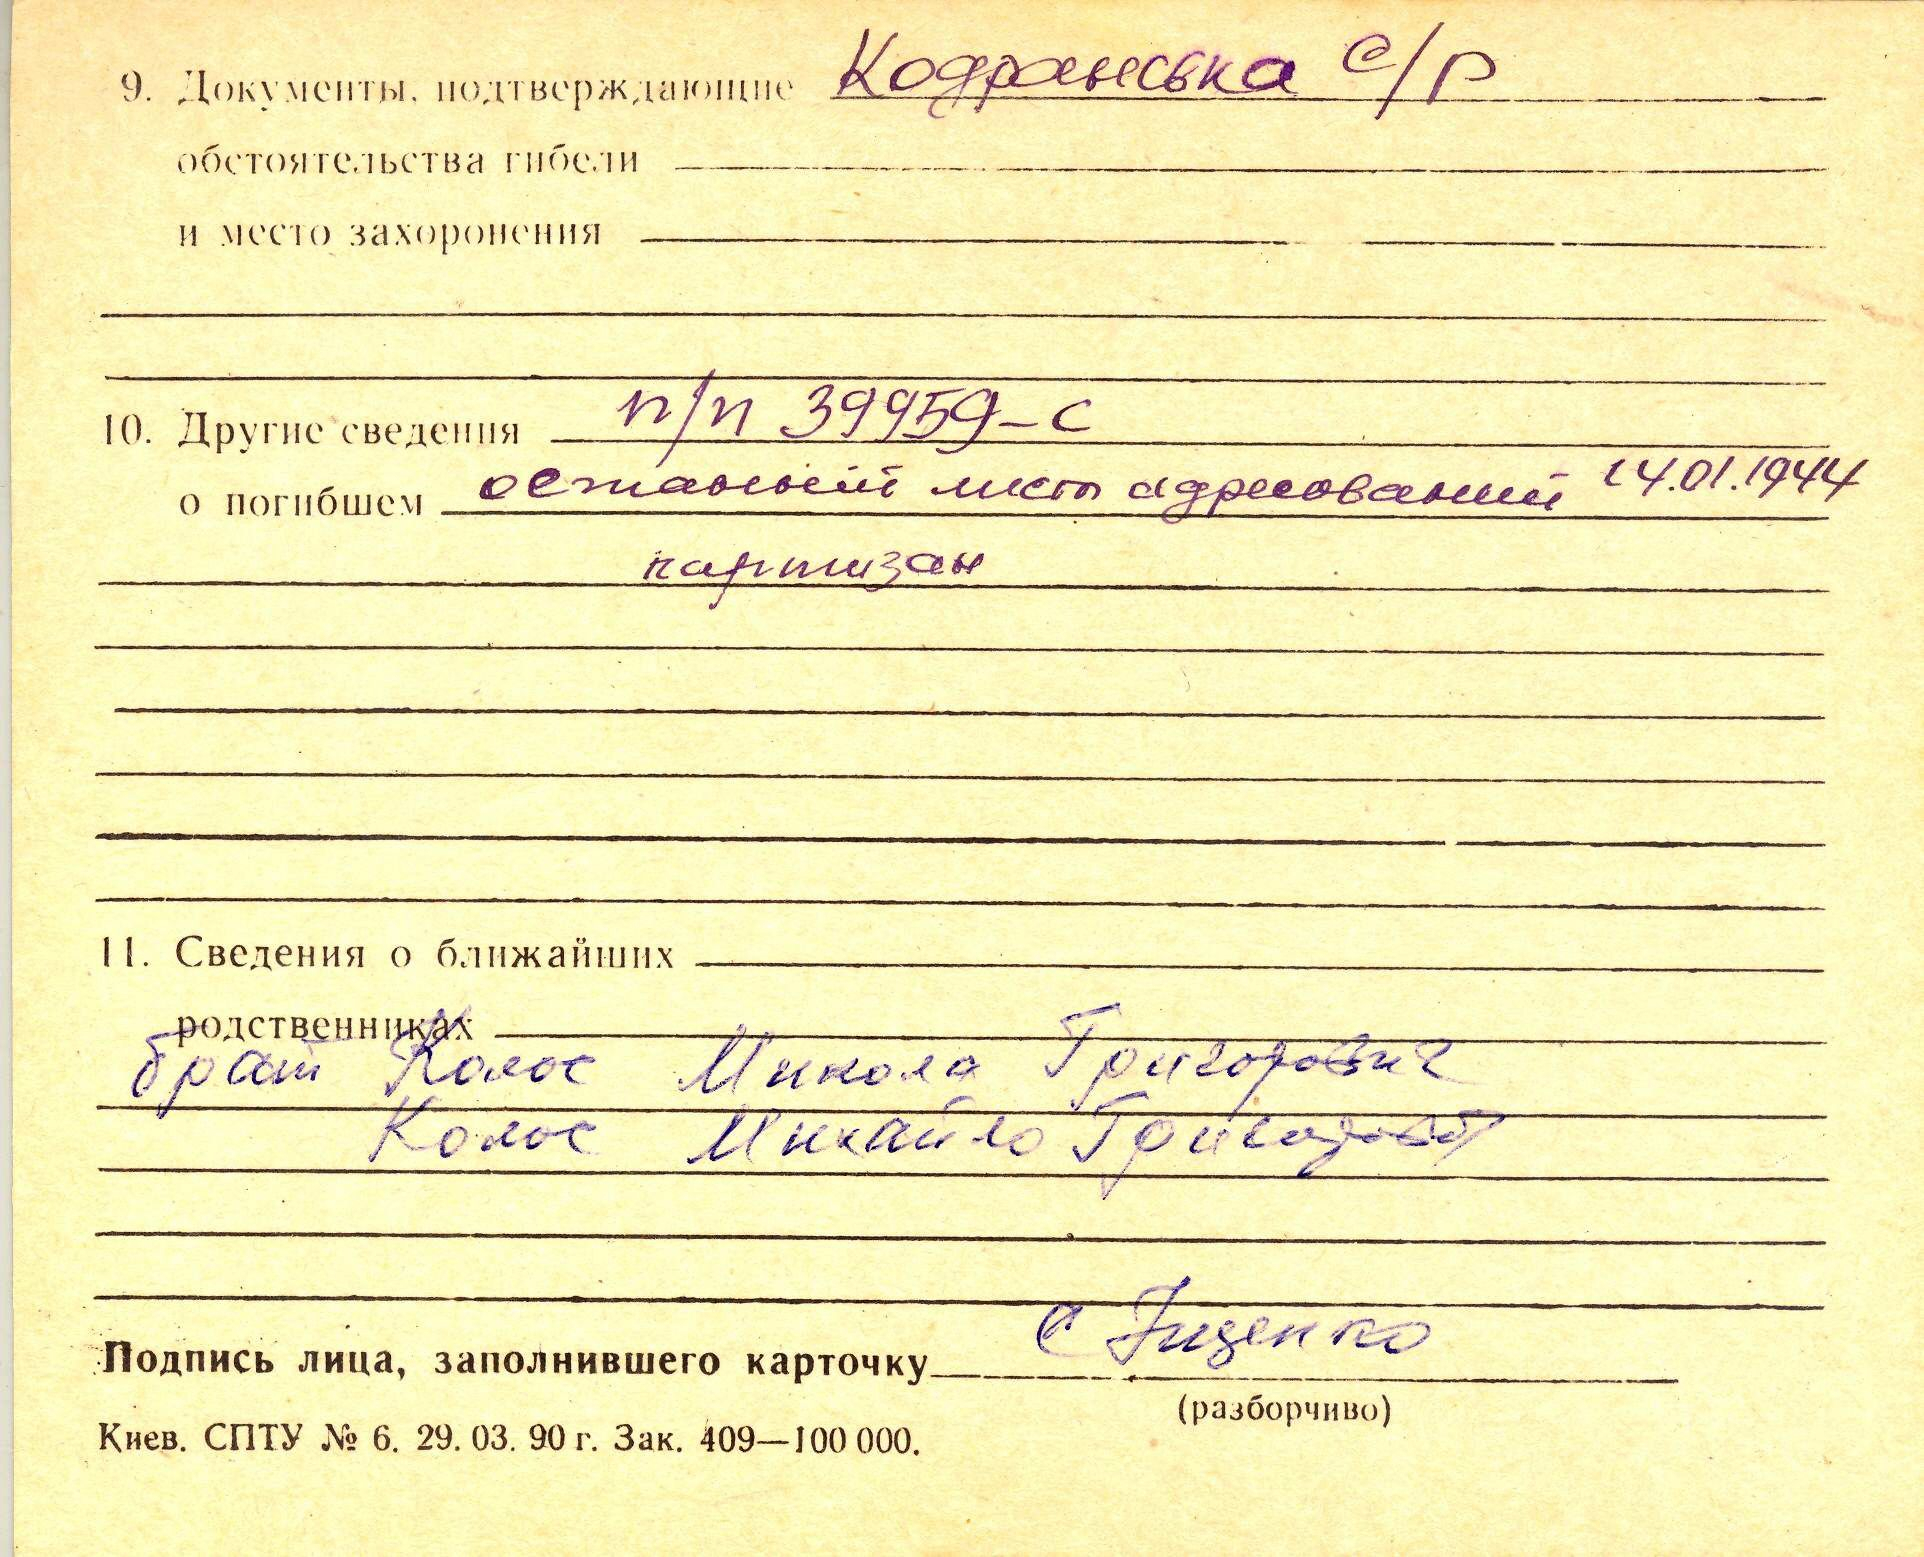 9. Документы, подтверждающие Кодранська с/р
обстоятельства гибели
и место захоронения
10. Другие сведения п/п 39959-с
о погибшем останний лист адресований 14.01.1944
партизан
11. Сведения о ближайших
родственниках
брат Колос Микола Григорович
Колос Михайло Григорович
Подпись лица, заполнившего карточку
(разборчиво)
Киев. СПТУ № 6. 29. 03. 90 г. Зак. 409—100 000.